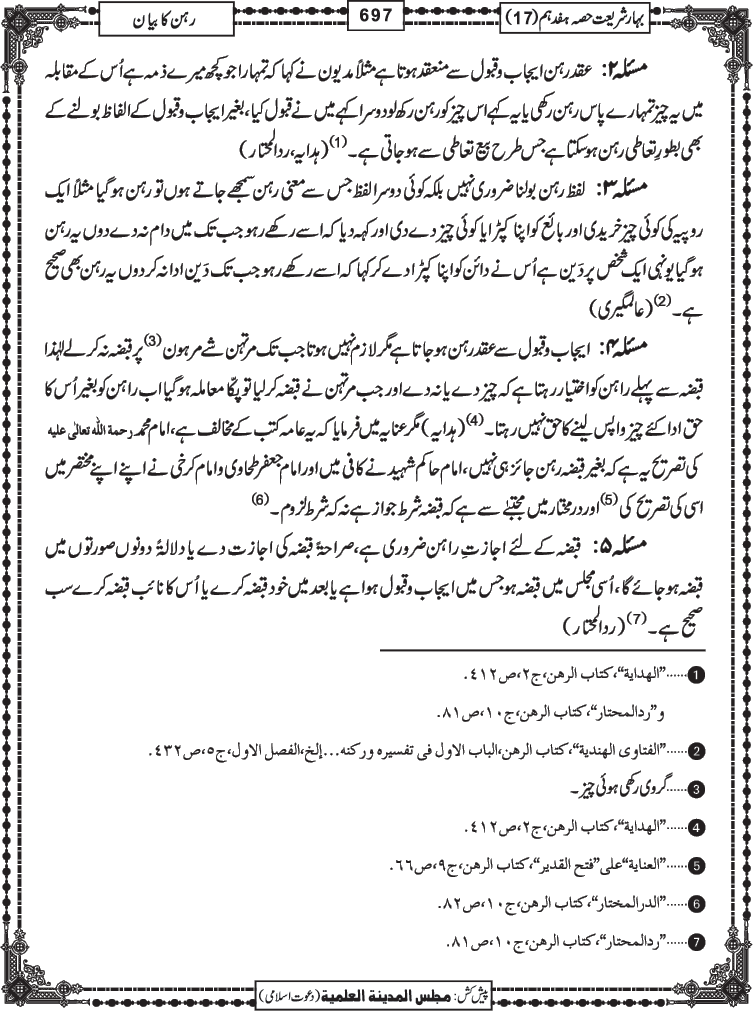 بہارِ شریعت حصہ ہفدہم (17)
697
رہن کا بیان
مسئلہ ۲: عقد رہن ایجاب و قبول سے منعقد ہوتا ہے مثلاً مدیون نے کہا کہ تمہارا جو کچھ میرے ذمہ ہے اُس کے مقابلہ
میں یہ چیز تمہارے پاس رہن رکھی یا یہ کہے اس چیز کو رہن رکھ لو دوسرا کہے میں نے قبول کیا، بغیر ایجاب و قبول کے الفاظ بولنے کے
بھی بطورِ تعاطی رہن ہوسکتا ہے جس طرح بیع تعاطی سے ہوجاتی ہے۔(1) (ہدایہ، ردالمحتار)
مسئلہ ۳: لفظ رہن بولنا ضروری نہیں بلکہ کوئی دوسرا لفظ جس سے معنی رہن سمجھے جاتے ہوں تو رہن ہوگیا مثلاً ایک
روپیہ کی کوئی چیز خریدی اور بائع کو اپنا کپڑا یا کوئی چیز دے دی اور کہہ دیا کہ اسے رکھے رہو جب تک میں دام نہ دے دوں یہ رہن
ہوگیا یونہی ایک شخص پر دَین ہے اُس نے دائن کو اپنا کپڑا دے کر کہا کہ اسے رکھے رہو جب تک دَین ادا نہ کردوں یہ رہن بھی صحیح
ہے۔(2) (عالمگیری)
مسئلہ ۴: ایجاب و قبول سے عقد رہن ہوجاتا ہے مگر لازم نہیں ہوتا جب تک مرتہن شے مرہون(3) پر قبضہ نہ کرلے لہٰذا
قبضہ سے پہلے راہن کو اختیار رہتا ہے کہ چیز دے یا نہ دے اور جب مرتہن نے قبضہ کرلیا تو پکا معاملہ ہوگیا اب راہن کو بغیر اُس کا
حق ادا کئے چیز واپس لینے کا حق نہیں رہتا۔(4) (ہدایہ) مگر عنایہ میں فرمایا کہ یہ عامہ کتب کے مخالف ہے، امام محمد رحمة الله تعالٰی علیه
کی تصریح یہ ہے کہ بغیر قبضہ رہن جائز ہی نہیں، امام حاکم شہید نے کافی میں اور امام جعفر طحاوی و امام کرخی نے اپنے اپنے مختصر میں
اسی کی تصریح کی(5) اور درمختار میں مجتبیٰ سے ہے کہ قبضہ شرط جواز ہے نہ کہ شرط لزوم۔(6)
مسئلہ ۵: قبضہ کے لئے اجازتِ راہن ضروری ہے، صراحۃً قبضہ کی اجازت دے یا دلالۃً دونوں صورتوں میں
قبضہ ہوجائے گا، اُسی مجلس میں قبضہ ہو جس میں ایجاب و قبول ہوا ہے یا بعد میں خود قبضہ کرے یا اُس کا نائب قبضہ کرے سب
صحیح ہے۔(7) (ردالمحتار)
1......"الهداية"، کتاب الرهن، ج۲، ص۴۱۲.
و"ردالمحتار"، کتاب الرهن، ج۱۰، ص۸۱.
2......"الفتاوی الهندية"، کتاب الرهن، الباب الاول فی تفسیره ورکنه...إلخ، الفصل الاول، ج۵، ص۴۳۲.
3......گروی رکھی ہوئی چیز۔
4......"الهداية"، کتاب الرهن، ج۲، ص۴۱۲.
5......"العناية" علی "فتح القدیر"، کتاب الرهن، ج۹، ص۶۶.
6......"الدرالمختار"، کتاب الرهن، ج۱۰، ص۸۲.
7......"ردالمحتار"، کتاب الرهن، ج۱۰، ص۸۱.
پیش کش: مجلس المدینة العلمیة (دعوت اسلامی)